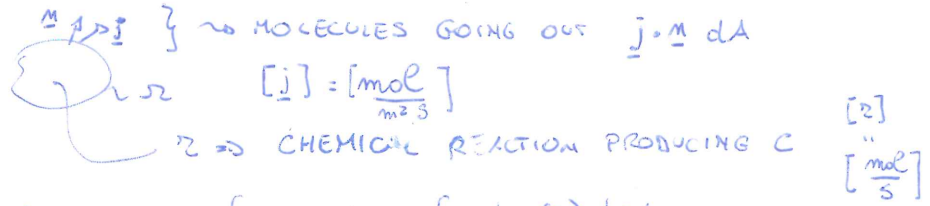 n j } ~> MOLECULES GOING OUT j · n dA
Ω [j] = [mol / m² s]
r => CHEMICAL REACTION PRODUCING C [r] " [mol / s]